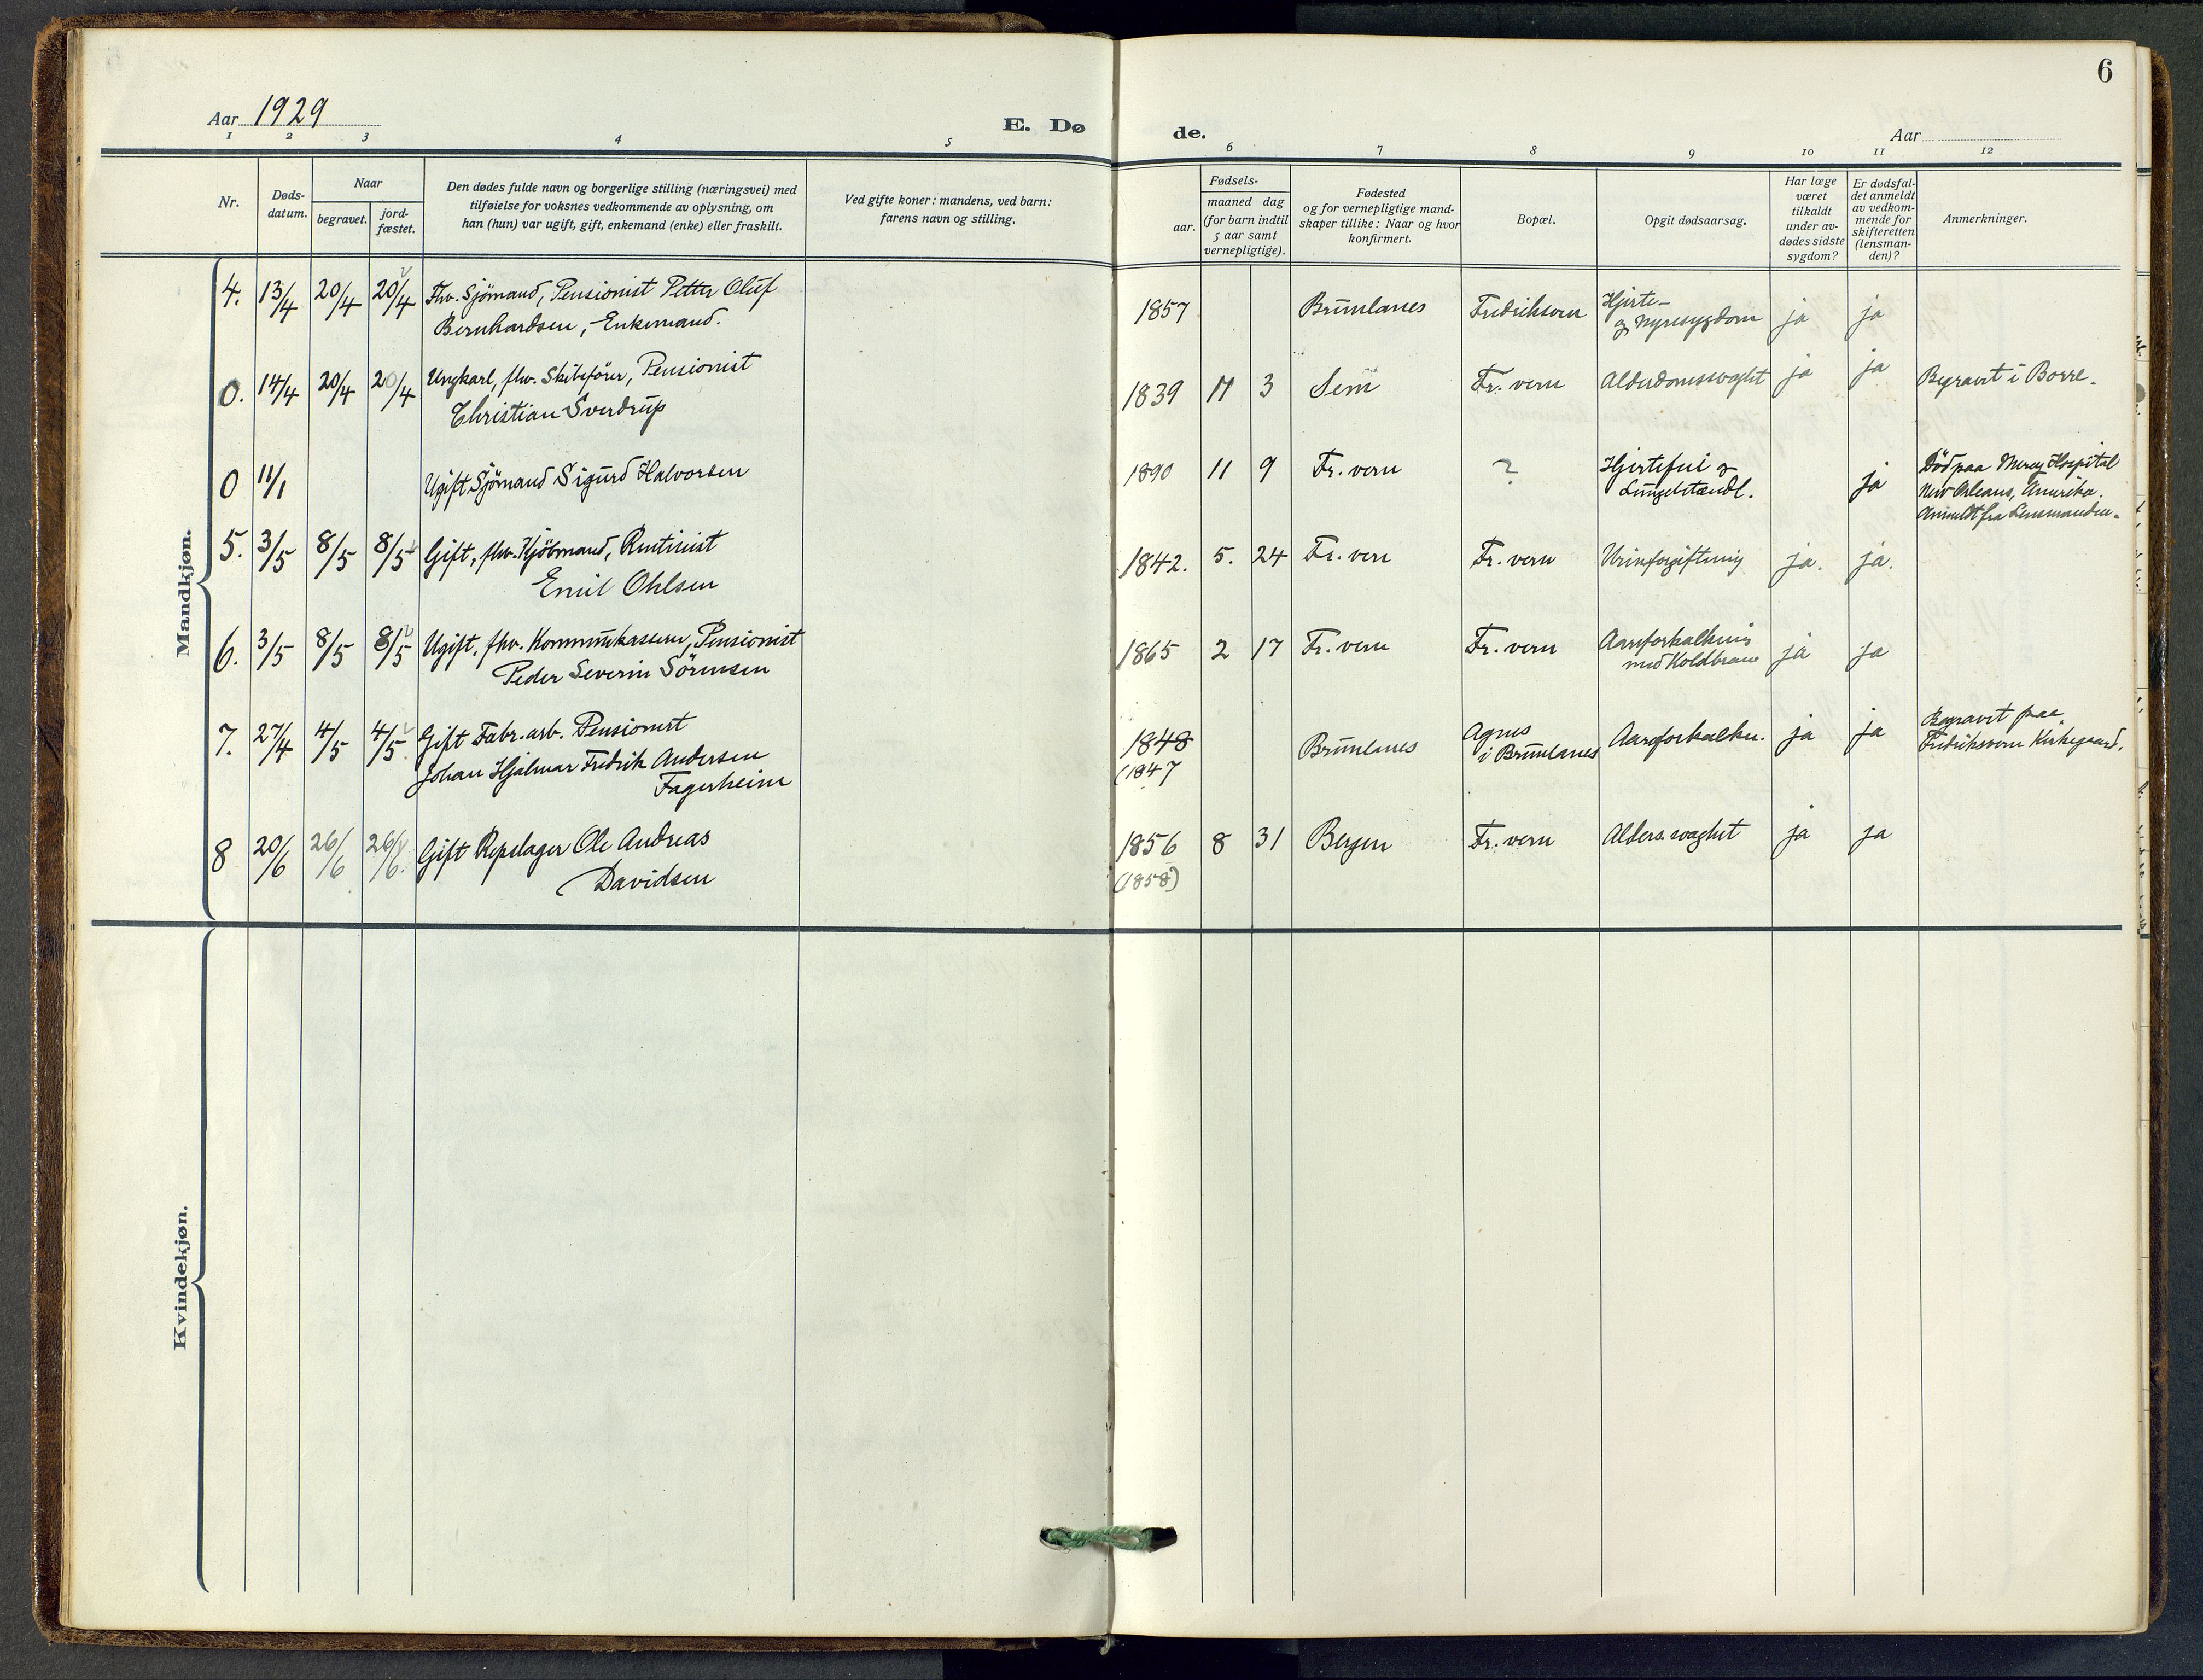 6
Aar 1929
E. Dø de.
Aar
1 2 3 4 5 6 7 8 9 10 11 12
Nr.
Døds-
datum.
Naar
begravet.
jord-
fæstet.
Den dødes fulde navn og borgerlige stilling (næringsvei) med
tilføielse for voksnes vedkommende av oplysning, om
han (hun) var ugift, gift, enkemand (enke) eller fraskilt.
Ved gifte koner: mandens, ved barn:
farens navn og stilling.
Fødsels-
aar.
maaned dag
(for barn indtil
5 aar samt
vernepligtige).
Fødested
og for vernepligtige mand-
skaper tillike: Naar og hvor
konfirmert.
Bopæl.
Opgit dødsaarsag.
Har læge
været
tilkaldt
under av-
dødes sidste
sygdom?
Er dødsfal-
det anmeldt
av vedkom-
mende for
skifteretten
(lensman-
den)?
Anmerkninger.
Mandkjøn.
4. 13/4 20/4 20/4 Fhv. Sjömand, Pensionist Petter Oluf
Bernhardsen, Enkemand.
1857 Brunlanes Fredriksvern Hjerte-
og Nyresygdom ja ja
0. 14/4 20/4 20/4 Ungkarl, fhv. Skibsfører, Pensionist
Christian Sverdrup
1839 11 3 Sem Fr. vern Alderdomssvaghet ja ja Begravet i Borre.
0 11/1 Ugift Sjömand Sigurd Halvorsen
1890 11 9 Fr. vern ? Hjertefeil og
Lungebetændl. ja Död paa Mercy Hospital
New Orleans, Amerika.
Anmeldt fra Lensmanden.
5. 3/5 8/5 8/5 Gift, fhv. Kjöbmand, Rentenist
Emil Ohlsen
1842. 5. 24 Fr. vern Fr. vern Urinforgiftning ja. ja.
6. 3/5 8/5 8/5 Ugift, fhv. Kommunekasserer, Pensionist
Peder Severin Sörensen
1865 2 17 Fr. vern Fr. vern Aareforkalkning
med Koldbrand ja ja
7. 27/4 4/5 4/5 Gift Fabr. arb. Pensionist
Johan Hjalmar Fredrik Andersen
Fagerheim
1848
(1847 Brunlanes Agnes
i Brunlanes Aareforkalkn. ja ja Begravet paa
Fredriksvern Kirkegaard.
8 20/6 26/6 26/6. Gift Repslager Ole Andreas
Davidsen
1856 8 31 Bergen Fr. vern Alders. svaghet ja ja
(1858)
Kvindekjøn.